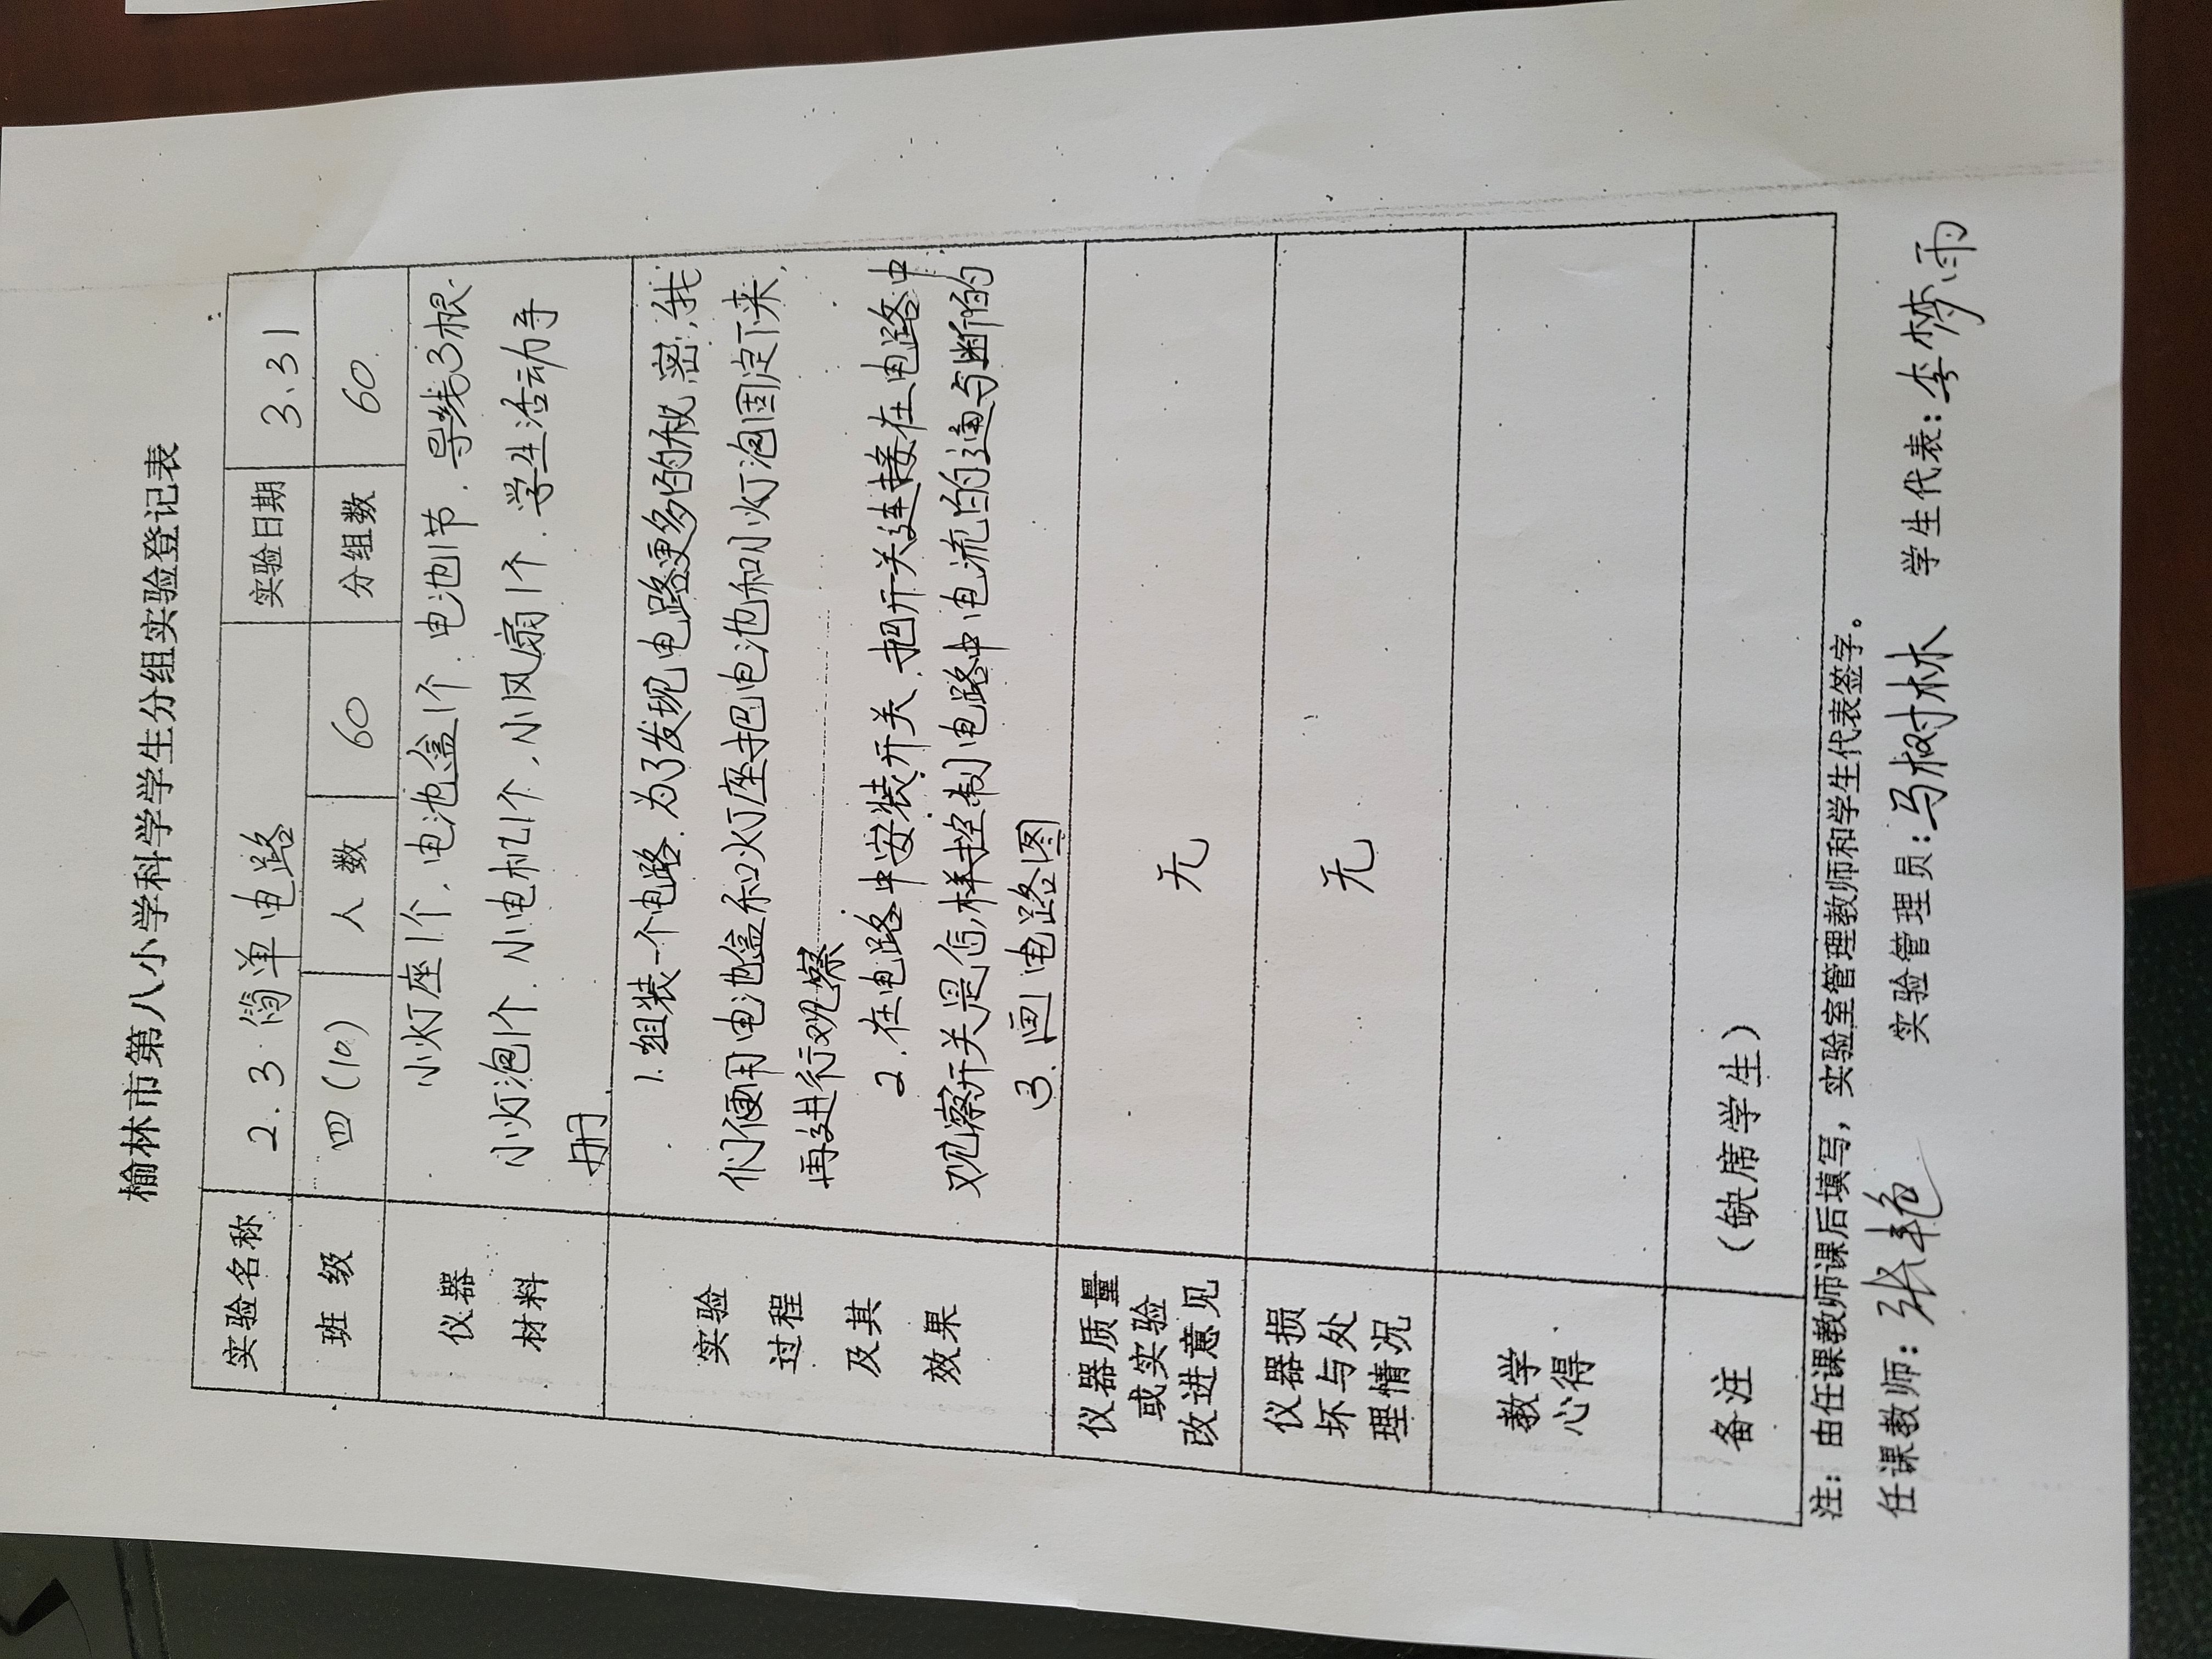 榆林市第八小学科学学生分组实验登记表
实验名称 2.3 简单电路 实验日期 3.31
班 级 四(10) 人 数 60 分组数 60
仪器
材料
小灯座1个,电池盒1个.电池1节.导线3根.
小灯泡1个.小电机1个,小风扇1个.学生活动手
册
实验
过程
及其
效果
1.组装一个电路.为了发现电路更多的秘密,我
们便用电池盒和小灯座把电池和小灯泡固定下来,
再进行观察
2.在电路中安装开关.把开关连接在电路中
观察开关是怎样控制电路中电流的通与断的
3.画电路图
仪器质量
或实验
改进意见
无
仪器损
坏与处
理情况
无
教学
心得
备注 (缺席学生)
注:由任课教师课后填写,实验室管理教师和学生代表签字。
任课教师:张艳 实验管理员:马树林 学生代表:李梦雨